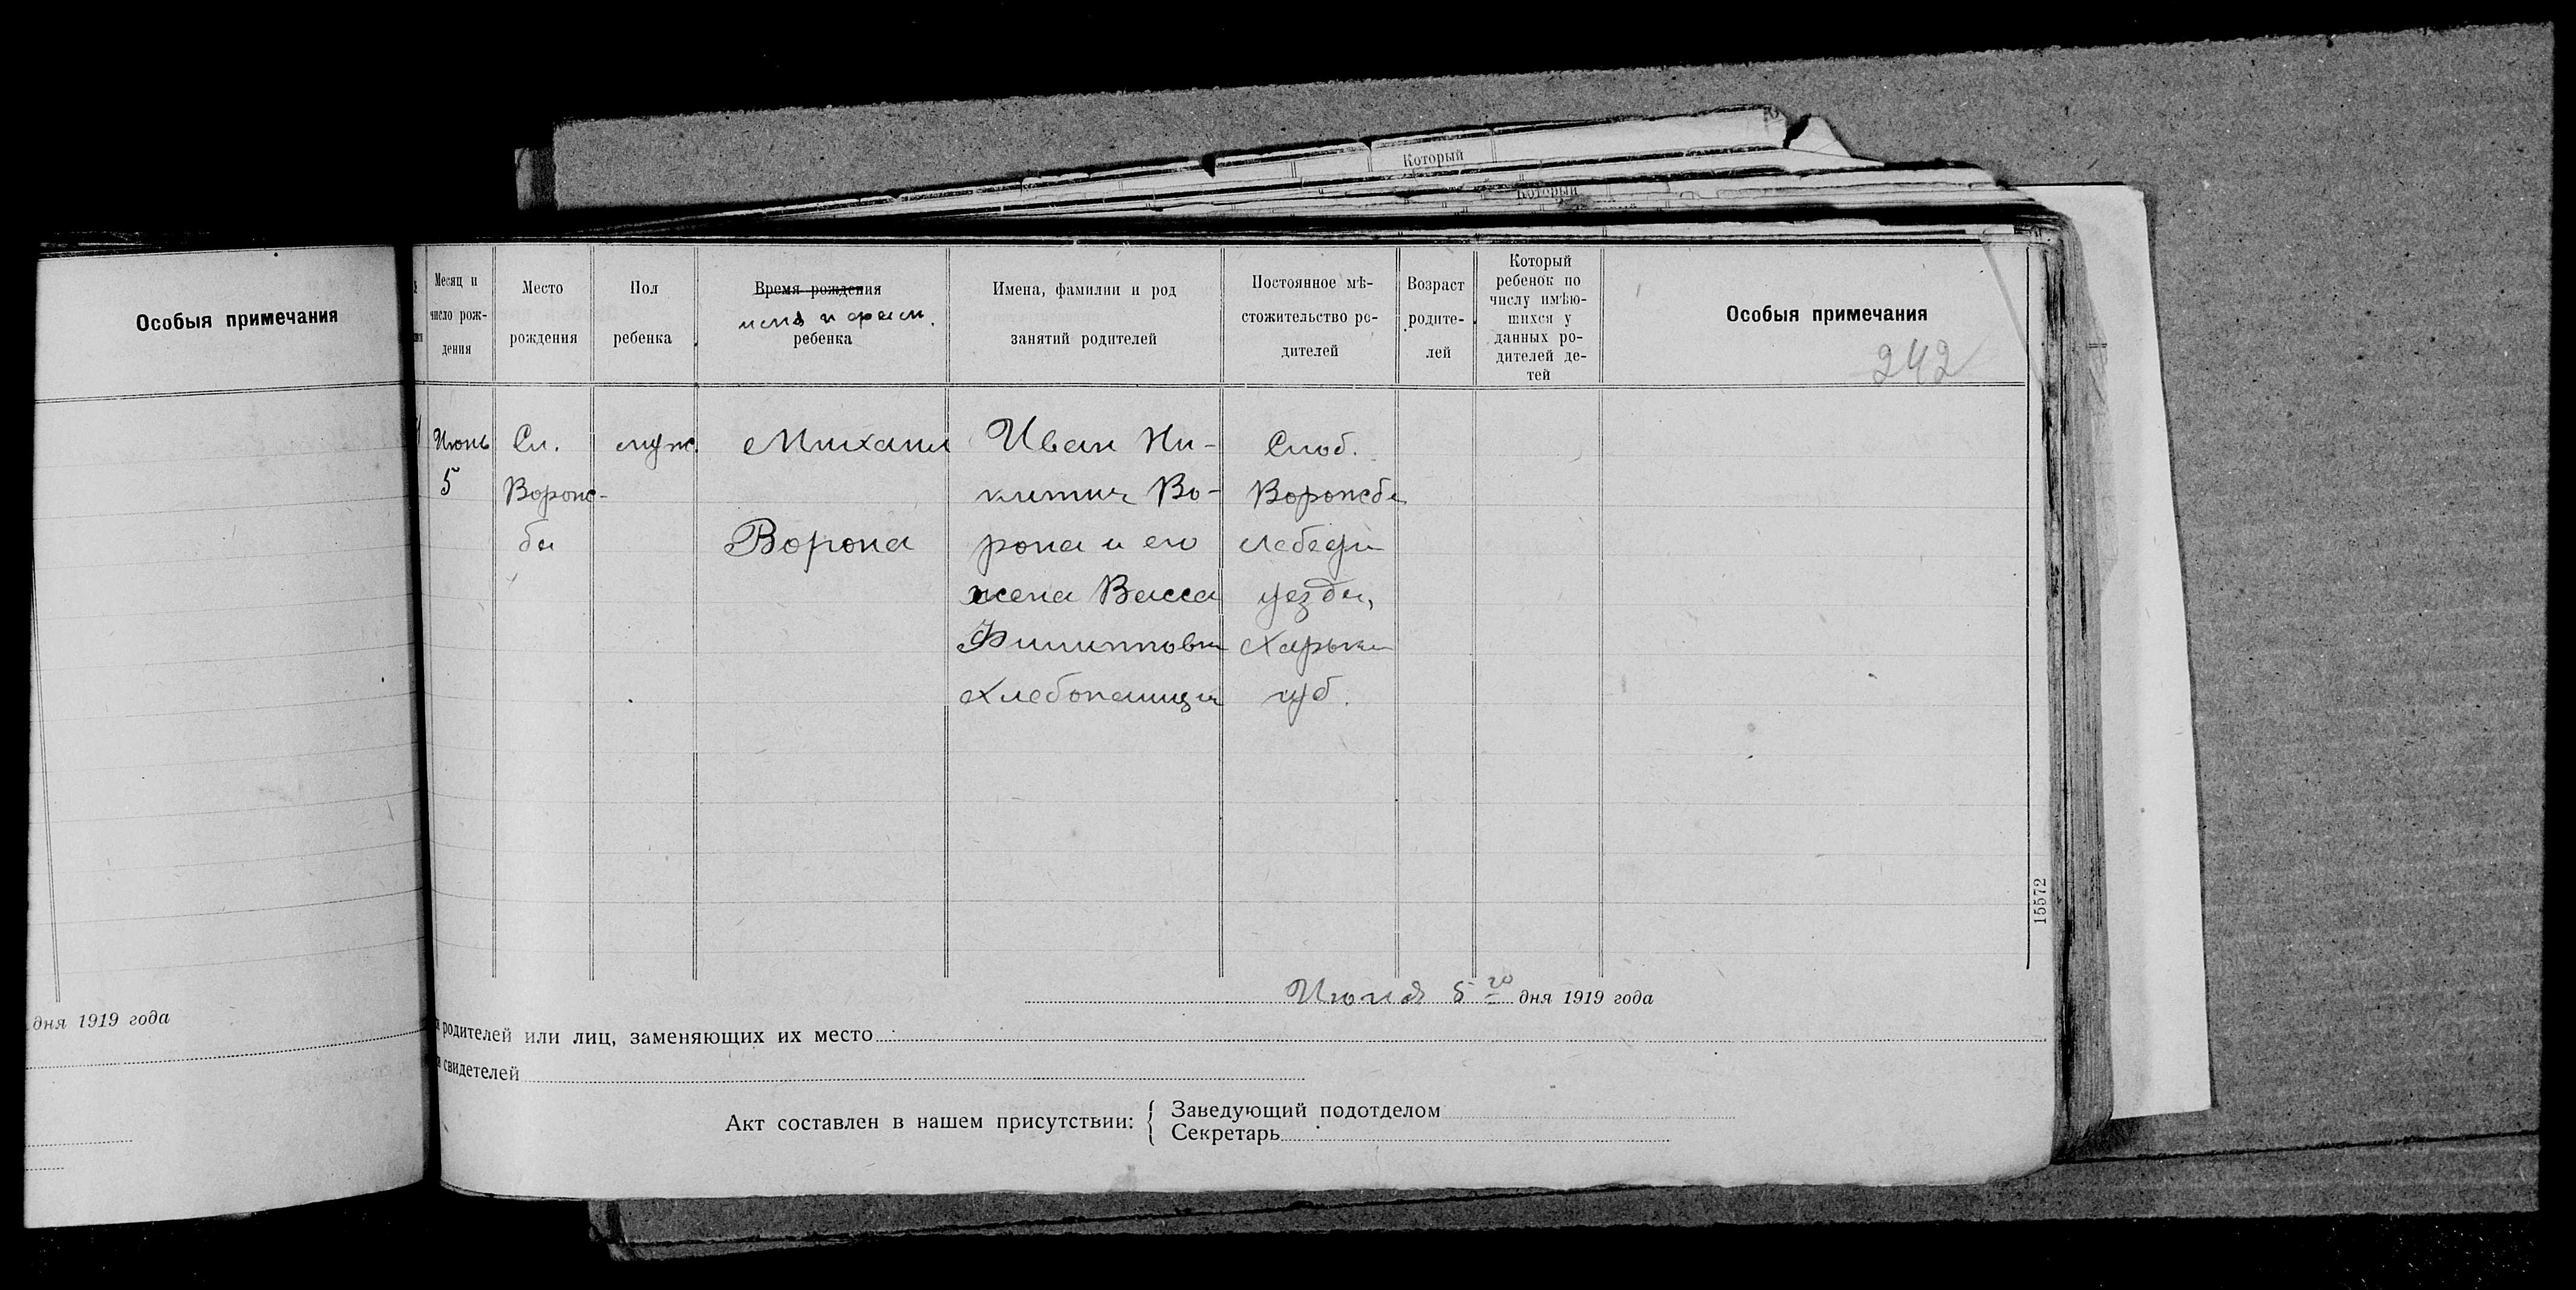 Который
Который
Особыя примечания
дня 1919 года
Месяц и число рождения
Место рождения
Пол ребенка
Время рождения
имя и фам.
ребенка
Имена, фамилии и род занятий родителей
Постоянное мѣ-
стожительство ро-
дителей
Возраст
родите-
лей
Который
ребенок по
числу имѣю-
шихся у
данных ро-
дителей де-
тей
Особыя примечания
242
Июнь
5
Сл.
Ворож-
ба
муж.
Михаил
Ворона
Иван Ни-
китич Во-
рона и его
жена Васса
Филипповна
Хлебопашцы
Слоб.
Ворожба
Лебедин
уезда,
Харьк
губ.
15572
Июня 5 го дня 1919 года
родителей или лиц, заменяющих их место
свидетелей
Акт составлен в нашем присутствии:
Заведующий подотделом
Секретарь